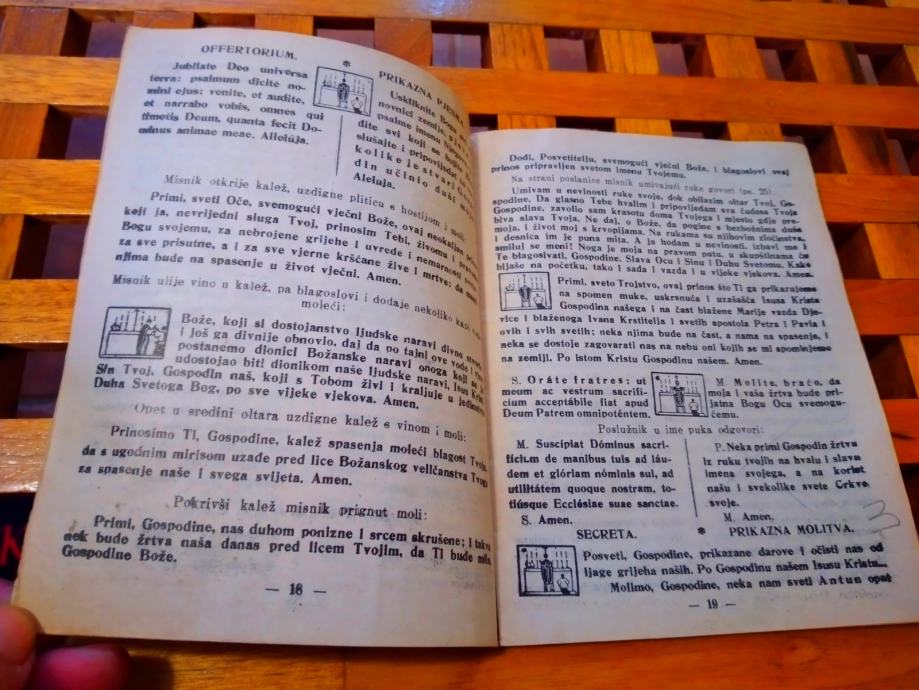 OFFERTORIUM.
Jubilate Deo universa
terra: psalmum dicite no-
mini ejus: venite, et audite,
et narrabo vobis, omnes qui
timetis Deum, quanta fecit Do-
minus animae meae. Alleluja.
*
PRIKAZNA PJESMA
Uskliknite Bogu
novnici zemlje,
psalme imenu Njegovu
dite svi koji se bojite
slušajte i pripovijedat
kolike je stvari
din učinio duši
Aleluja.
Misnik otkrije kalež, uzdigne pliticu s hostijom i moli:
Primi, sveti Oče, svemogući vječni Bože, ovaj neokaljan
koji ja, nevrijedni sluga Tvoj, prinosim Tebi, živomu i pravomu
Bogu svojemu, za nebrojene grijehe i uvrede i nemarnosti
za sve prisutne, a i za sve vjerne kršćane žive i mrtve: da
njima bude na spasenje u život vječni. Amen.
Misnik ulije vino u kalež, pa blagoslovi i dodaje nekoliko kapi
moleći:
Bože, koji si dostojanstvo ljudske naravi divno
i još ga divnije obnovio, daj da po tajni ove vode i
postanemo dionici Božanske naravi onoga koji se je
udostojao biti dionikom naše ljudske naravi, Isus Krist,
Sin Tvoj, Gospodin naš, koji s Tobom živi i kraljuje u jedinstvu
Duha Svetoga Bog, po sve vijeke vjekova. Amen.
Opet u sredini oltara uzdigne kalež s vinom i moli:
Prinosimo Ti, Gospodine, kalež spasenja moleći blagost Tvoju,
da s ugodnim mirisom uzađe pred lice Božanskog veličanstva Tvoga
za spasenje naše i svega svijeta. Amen.
Pokrivši kalež misnik prignut moli:
Primi, Gospodine, nas duhom ponizne i srcem skrušene; i takva
nek bude žrtva naša danas pred licem Tvojim, da Ti bude mila,
Gospodine Bože.
— 18 —
Dođi, Posvetitelju, svemogući vječni Bože, i blagoslovi ovaj
prinos pripravljen svetom imenu Tvojemu.
Na strani poslanice misnik umivajući ruke govori (ps. 25):
Umivam u nevinosti ruke svoje, dok obilazim oltar Tvoj, Go-
spodine. Da glasno Tebe hvalim i pripovijedam sva čudesa Tvoja
Gospodine, zavolio sam krasotu doma Tvojega i mjesto gdje pre-
biva slava Tvoja. Ne daj, o Bože, da pogine s bezbožnima duša
moja, i život moj s krvopijama. Na rukama su njihovim zločinstva,
i desnica im je puna mita. A ja hodam u nevinosti, izbavi me i
smiluj se meni! Noga je moja na pravom putu, u skupštinama ću
Te blagosivati, Gospodine. Slava Ocu i Sinu i Duhu Svetomu. Kako
bijaše na početku, tako i sada i vazda i u vijeke vjekova. Amen.
Primi, sveto Trojstvo, ovaj prinos što Ti ga prikazujemo
na spomen muke, uskrsnuća i uzašašća Isusa Krista
Gospodina našega i na čast blažene Marije vazda Dje-
vice i blaženoga Ivana Krstitelja i svetih apostola Petra i Pavla i
ovih i svih svetih; neka njima bude na čast, a nama na spasenje, i
neka se dostoje zagovarati nas na nebu oni kojih se mi spominjemo
na zemlji. Po istom Kristu Gospodinu našem. Amen.
S. Oráte fratres: ut
meum ac vestrum sacrifi-
cium acceptábile fiat apud
Deum Patrem omnipoténtem.
M. Molite, braćo, da
moja i vaša žrtva bude pri-
jatna Bogu Ocu svemogu-
ćemu.
Poslužnik u ime puka odgovori:
M. Suscipiat Dóminus sacri-
fícium de manibus tuis ad láu-
dem et glóriam nóminis sui, ad
utilitátem quoque nostram, to-
tiúsque Ecclésiae suae sanctae.
S. Amen.
P. Neka primi Gospodin žrtvu
iz ruku tvojih na hvalu i slavu
imena svojega, a na korist
našu i svekolike svete Crkve
svoje.
M. Amen.
3
SECRETA.
*
PRIKAZNA MOLITVA.
Posveti, Gospodine, prikazane darove i očisti nas od
ljage grijeha naših. Po Gospodinu našem Isusu Kristu...
Molimo, Gospodine, neka nam sveti Antun opet
— 19 —